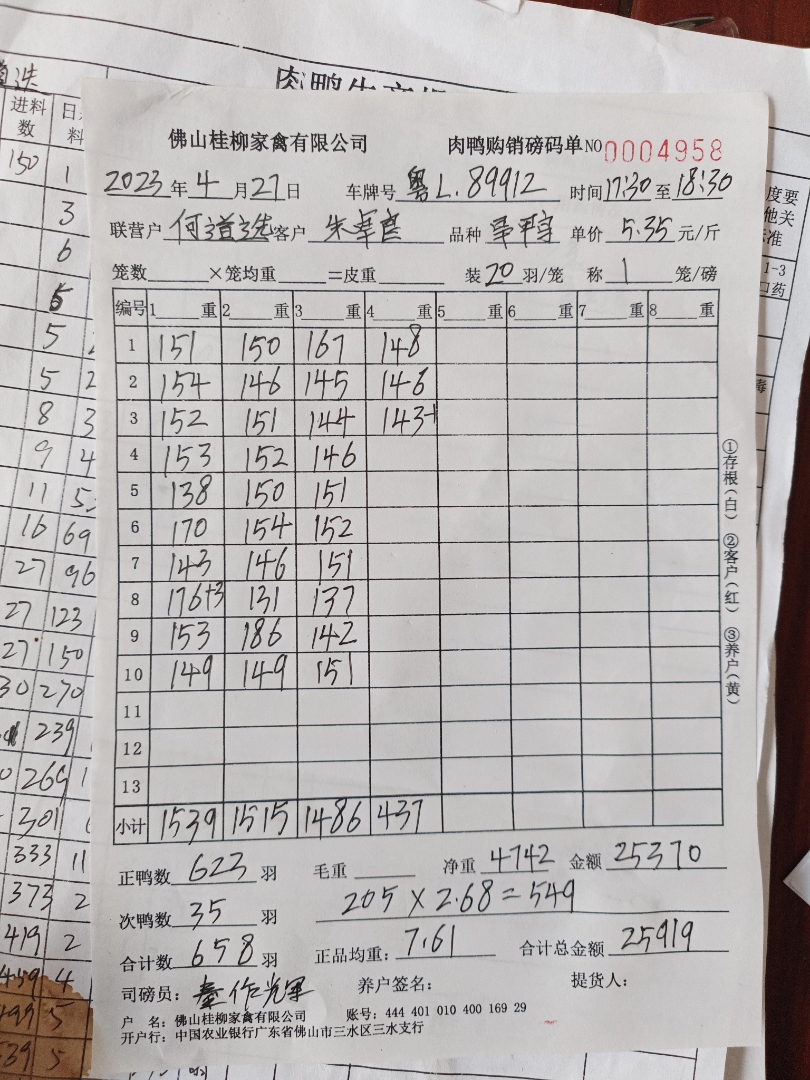 肉鸭生产
进料数 日
150 1
3
6
5
5
5 2
8 3
9 4
11 5
16 69
27 96
27 123
27 150
30 270
239
269 1
301
333 11
373 2
419 2
459 4
499 5
539 5
佛山桂柳家禽有限公司 肉鸭购销磅码单 NO 0004958
2023年4月27日 车牌号 粤L.89912 时间17:30至18:30
联营户 何道选 客户 朱 品种 单价 5.35 元/斤
笼数 ×笼均重 =皮重 装20羽/笼 称 1 笼/磅
编号 1 重 2 重 3 重 4 重 5 重 6 重 7 重 8 重
1 151 150 167 148
2 154 146 145 146
3 152 151 144 143-1
4 153 152 146
5 138 150 151
6 170 154 152
7 143 146 151
8 176+3 131 137
9 153 186 142
10 149 149 151
11
12
13
小计 1539 1515 1486 437
正鸭数 623 羽 毛重 净重 4742 金额 25370
次鸭数 35 羽 205×2.68=549
合计数 658 羽 正品均重: 7.61 合计总金额 25919
司磅员: 养户签名: 提货人:
户 名: 佛山桂柳家禽有限公司 账号: 444 401 010 400 169 29
开户行: 中国农业银行广东省佛山市三水区三水支行
①存根(白) ②客户(红) ③养户(黄)
度要
他关
准
1-3
口药
毒